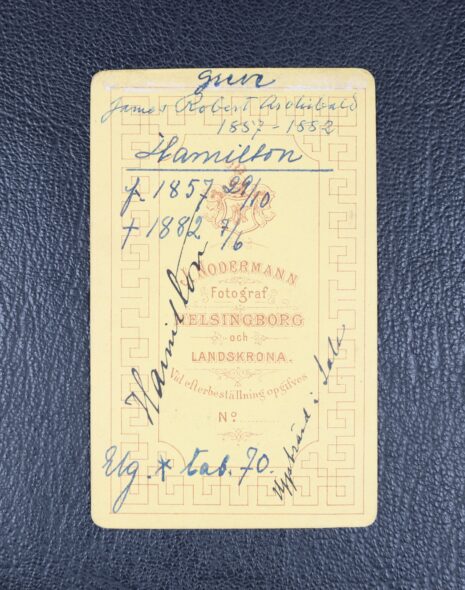 greve
James Robert Archibald
1857-1882
Hamilton
f. 1857 29/10
† 1882 7/6
Hamilton
NODERMANN
Fotograf
HELSINGBORG
och
LANDSKRONA.
Vid efterbeställning opgifves
Nº
Elg. * tab. 70.
i